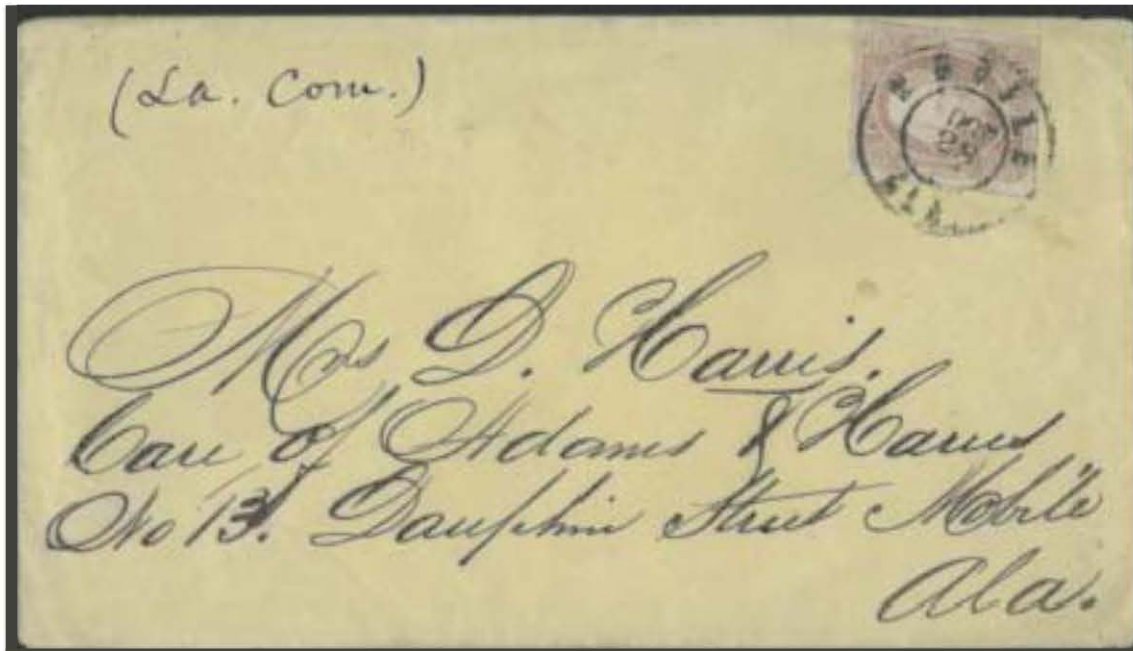 (La. Com.)
MOBILE
29
ALA
Mrs D. Harris.
Care of Adams & Harris
No 13. Dauphin Street Mobile
Ala.